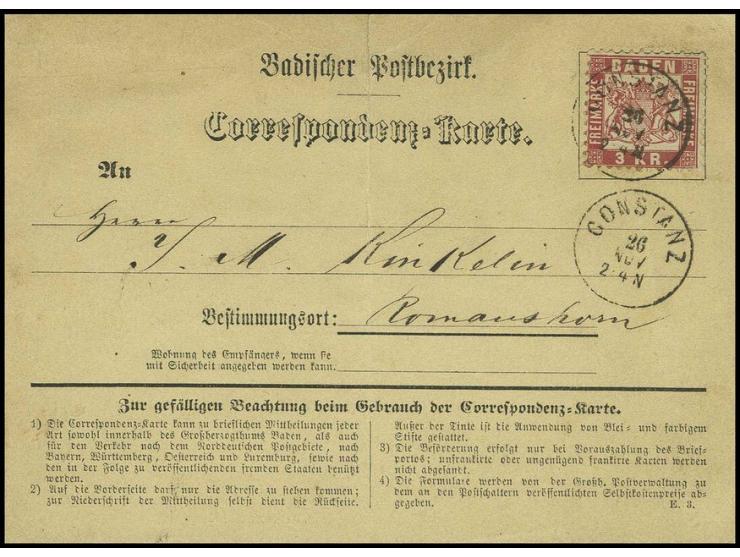 Badischer Postbezirk.
Correspondenz-Karte.
BADEN
FREIMARKE
3 KR.
CONSTANZ
26
NOV
2-4 N
An
Herrn
J. M. Kinkelin
CONSTANZ
26
NOV
2-4 N
Bestimmungsort: Romanshorn
Wohnung des Empfängers, wenn sie
mit Sicherheit angegeben werden kann.
Zur gefälligen Beachtung beim Gebrauch der Correspondenz-Karte.
1) Die Correspondenz-Karte kann zu brieflichen Mittheilungen jeder
Art sowohl innerhalb des Großherzogthums Baden, als auch
für den Verkehr nach dem Norddeutschen Postgebiete, nach
Bayern, Württemberg, Oesterreich und Luxemburg, sowie nach
den in der Folge zu veröffentlichenden fremden Staaten benützt
werden.
2) Auf die Vorderseite darf nur die Adresse zu stehen kommen;
zur Niederschrift der Mittheilung selbst dient die Rückseite.
Außer der Tinte ist die Anwendung von Blei- und farbigem
Stifte gestattet.
3) Die Beförderung erfolgt nur bei Vorauszahlung des Brief-
portos; unfrankirte oder ungenügend frankirte Karten werden
nicht abgesandt.
4) Die Formulare werden von der Großh. Postverwaltung zu
dem an den Postschaltern veröffentlichten Selbstkostenpreise ab-
gegeben.
E. 3.